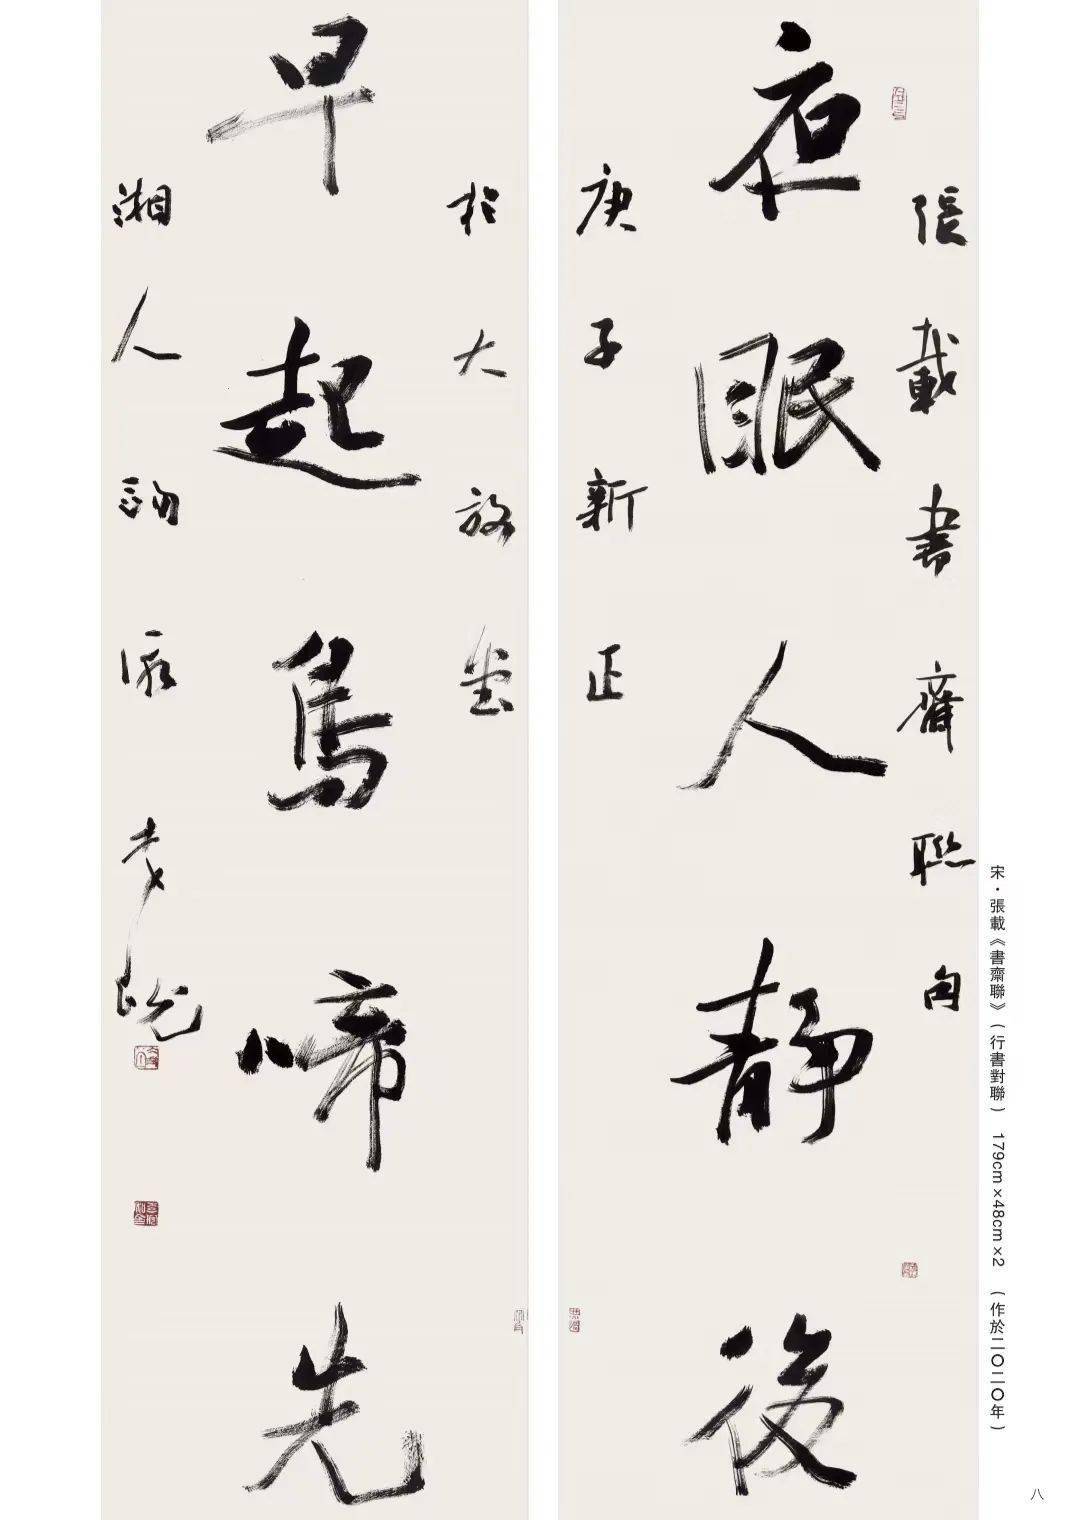 張載書齋聯句
夜眠人靜後
庚子新正
於大放堂
早起鳥啼先
湘人
宋·張載《書齋聯》（行書對聯） 179cm×48cm×2 （作於二〇二〇年）
八